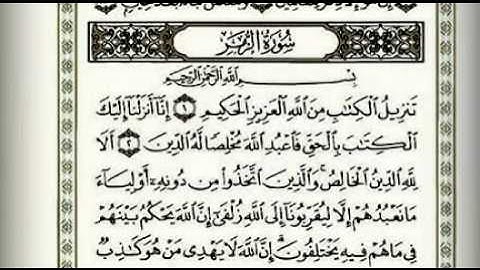 سُورَةُ الزُّمَرِ
بِسْمِ اللَّهِ الرَّحْمَٰنِ الرَّحِيمِ
تَنزِيلُ الْكِتَابِ مِنَ اللَّهِ الْعَزِيزِ الْحَكِيمِ ١ إِنَّا أَنزَلْنَا إِلَيْكَ
الْكِتَابَ بِالْحَقِّ فَاعْبُدِ اللَّهَ مُخْلِصًا لَّهُ الدِّينَ ٢ أَلَا
لِلَّهِ الدِّينُ الْخَالِصُ وَالَّذِينَ اتَّخَذُوا مِن دُونِهِ أَوْلِيَاءَ
مَا نَعْبُدُهُمْ إِلَّا لِيُقَرِّبُونَا إِلَى اللَّهِ زُلْفَىٰ إِنَّ اللَّهَ يَحْكُمُ بَيْنَهُمْ
فِي مَا هُمْ فِيهِ يَخْتَلِفُونَ إِنَّ اللَّهَ لَا يَهْدِي مَنْ هُوَ كَاذِبٌ